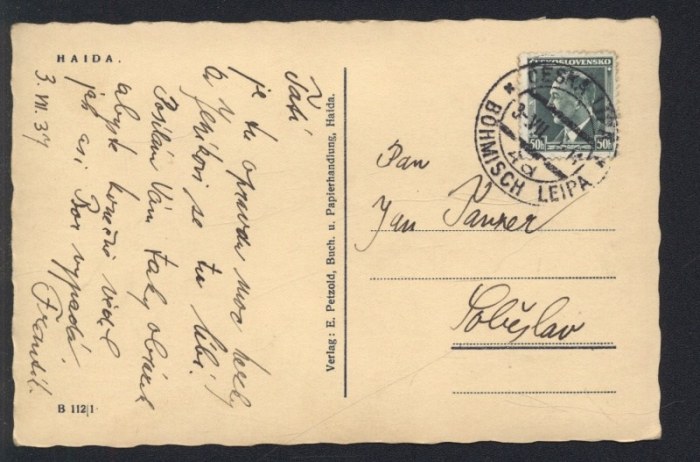 HAIDA.
3. VII. 37
Tati
je tu opravdu moc hezky
a Jeníkovi se tu líbí.
Posílám Vám taky obrázek
abyste konečně věděl
jak asi Bor vypadá
Frantík.
B 112|1
Verlag: E. Petzold, Buch. u. Papierhandlung, Haida.
ČESKOSLOVENSKO
50h 50h
ČESKÁ LÍPA
3.VII.
BÖHMISCH LEIPA
Pan
Jan
Soběslav